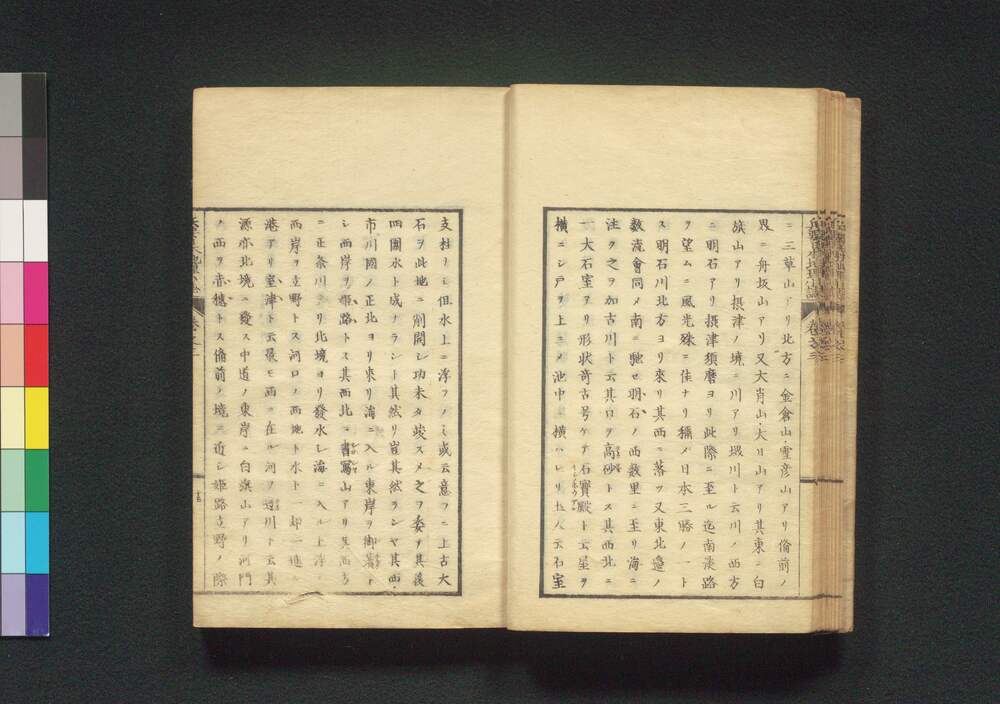 ニ三草山アリ北方ニ金倉山雪彦山アリ備前ノ
界ニ舟坂山アリ又大嵜山大リ山アリ其東ニ白
旗山アリ摂津ノ境ニ川アリ堺川ト云川ノ西方
ニ明石アリ摂津須磨ヨリ此際ニ至ル迄南淡路
ヲ望ム二風光殊ニ佳ナリ稱メ日本三勝ノ一ト
ス明石川北方ヨリ來リ其西ニ落ツ又東北邉ノ
数流會同メ南ニ馳セ明石ノ西数里ニ至リ海ニ
注ク之ヲ加古川ト云其口ヲ高砂トス其西北ニ
一大石室アリ形状奇古号ケテ石寶殿ト云屋ヲ
横ニシ戸ヲ上ニメ池中ニ横ハレリ土人云石室
支柱ナシ但水上ニ浮フノミ或云意フニ上古大
石ヲ此地ニ削開シ功未タ峻スメ之ヲ委テ其後
四圍水ト成ナラント其然リ豈其然ランヤ其西
市川國ノ正北ヨリ來リ海ニ入ル東岸ヲ御著ト
シ西岸ヲ姫路トス其西北ニ書寫山アリ其西方
ニ正条川アリ北境ヨリ發水レ海ニ入ル上浮ニ
西岸ヲ立野トス河口ノ西地ト水ト一却一進ノ
港アリ室津ト云最モ西ニ在ル河ヲ川ト云其
源亦北境ニ發ス中道ノ東岸ニ白旗山アリ河門
ノ西ヲ赤穂トス備前ノ境ニ近シ姫路立野ノ際